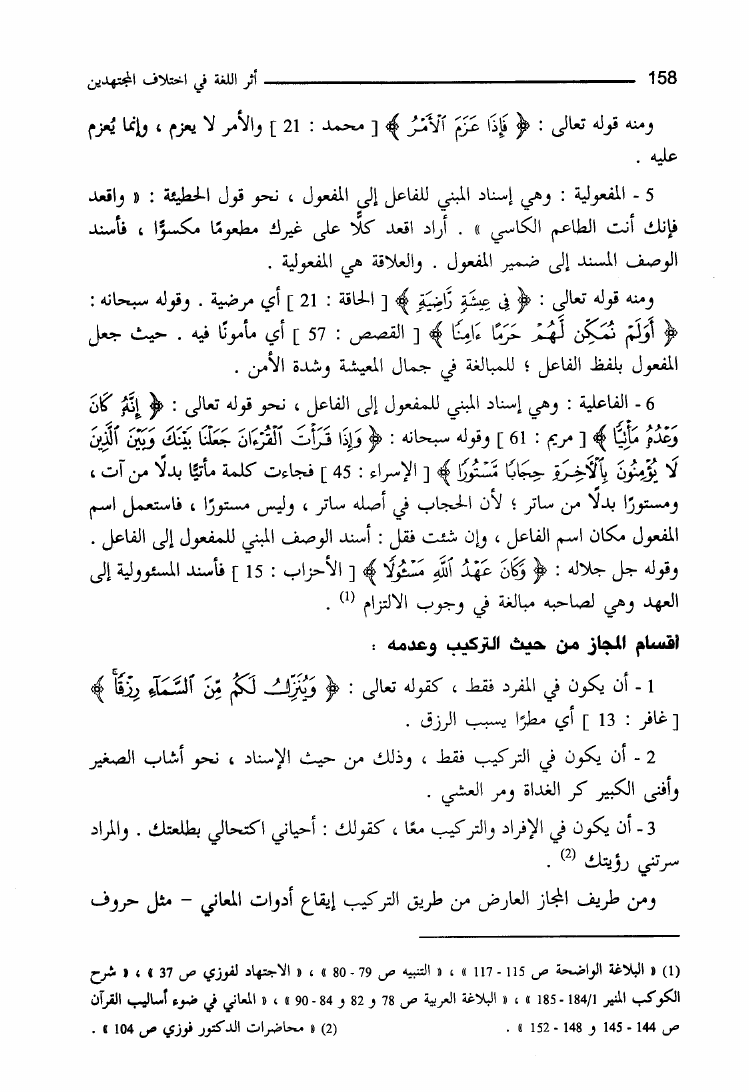 158 أثر اللغة في اختلاف المجتهدين
ومنه قوله تعالى : ﴿ فَإِذَا عَزَمَ ٱلْأَمْرُ ﴾ [ محمد : 21 ] والأمر لا يعزم ، وإنما يُعزم
عليه .
5 - المفعولية : وهي إسناد المبني للفاعل إلى المفعول ، نحو قول الحطيئة : « واقعد
فإنك أنت الطاعم الكاسي » . أراد اقعد كلًّا على غيرك مطعومًا مكسوًّا ، فأسند
الوصف المسند إلى ضمير المفعول . والعلاقة هي المفعولية .
ومنه قوله تعالى : ﴿ فِى عِيشَةٍ رَّاضِيَةٍ ﴾ [ الحاقة : 21 ] أي مرضية . وقوله سبحانه :
﴿ أَوَلَمْ نُمَكِّن لَّهُمْ حَرَمًا ءَامِنًا ﴾ [ القصص : 57 ] أي مأمونًا فيه . حيث جعل
المفعول بلفظ الفاعل ؛ للمبالغة في جمال المعيشة وشدة الأمن .
6 - الفاعلية : وهي إسناد المبني للمفعول إلى الفاعل ، نحو قوله تعالى : ﴿ إِنَّهُۥ كَانَ
وَعْدُهُۥ مَأْتِيًّا ﴾ [ مريم : 61 ] وقوله سبحانه : ﴿ وَإِذَا قَرَأْتَ ٱلْقُرْءَانَ جَعَلْنَا بَيْنَكَ وَبَيْنَ ٱلَّذِينَ
لَا يُؤْمِنُونَ بِٱلْأَخِرَةِ حِجَابًا مَّسْتُورًا ﴾ [ الإسراء : 45 ] فجاءت كلمة مأتيًّا بدلًا من آت ،
ومستورًا بدلًا من ساتر ؛ لأن الحجاب في أصله ساتر ، وليس مستورًا ، فاستعمل اسم
المفعول مكان اسم الفاعل ، وإن شئت فقل : أسند الوصف المبني للمفعول إلى الفاعل .
وقوله جل جلاله : ﴿ وَكَانَ عَهْدُ ٱللَّهِ مَسْـُٔولًا ﴾ [ الأحزاب : 15 ] فأسند المسئوولية إلى
العهد وهي لصاحبه مبالغة في وجوب الالتزام (1) .
أقسام المجاز من حيث التركيب وعدمه :
1 - أن يكون في المفرد فقط ، كقوله تعالى : ﴿ وَيُنَزِّلُ لَكُم مِّنَ ٱلسَّمَآءِ رِزْقًا ۚ ﴾
[ غافر : 13 ] أي مطرًا يسبب الرزق .
2 - أن يكون في التركيب فقط ، وذلك من حيث الإسناد ، نحو أشاب الصغير
وأفنى الكبير كر الغداة ومر العشي .
3 - أن يكون في الإفراد والتركيب معًا ، كقولك : أحياني اكتحالي بطلعتك . والمراد
سرتني رؤيتك (2) .
ومن طريف المجاز العارض من طريق التركيب إيقاع أدوات المعاني – مثل حروف
(1) « البلاغة الواضحة ص 115 - 117 » ، « التنبيه ص 79 - 80 » ، « الاجتهاد لفوزي ص 37 » ، « شرح
الكوكب المنير 184/1 - 185 » ، « البلاغة العربية ص 78 و 82 و 84 - 90 » ، « المعاني في ضوء أساليب القرآن
ص 144 - 145 و 148 - 152 » . (2) « محاضرات الدكتور فوزي ص 104 » .